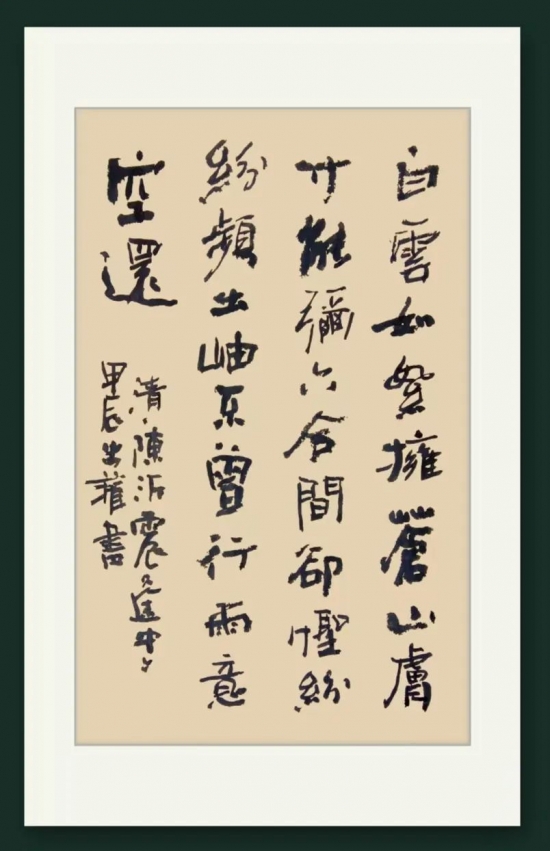 白雲如絮擁蒼山膚
寸能彌六合間卻怪紛
紛頻出岫未曾行雨意
空還
清陳沂震
甲辰 書